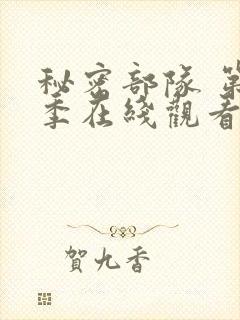 秘密部隊 第
季在綫觀看
賀九香